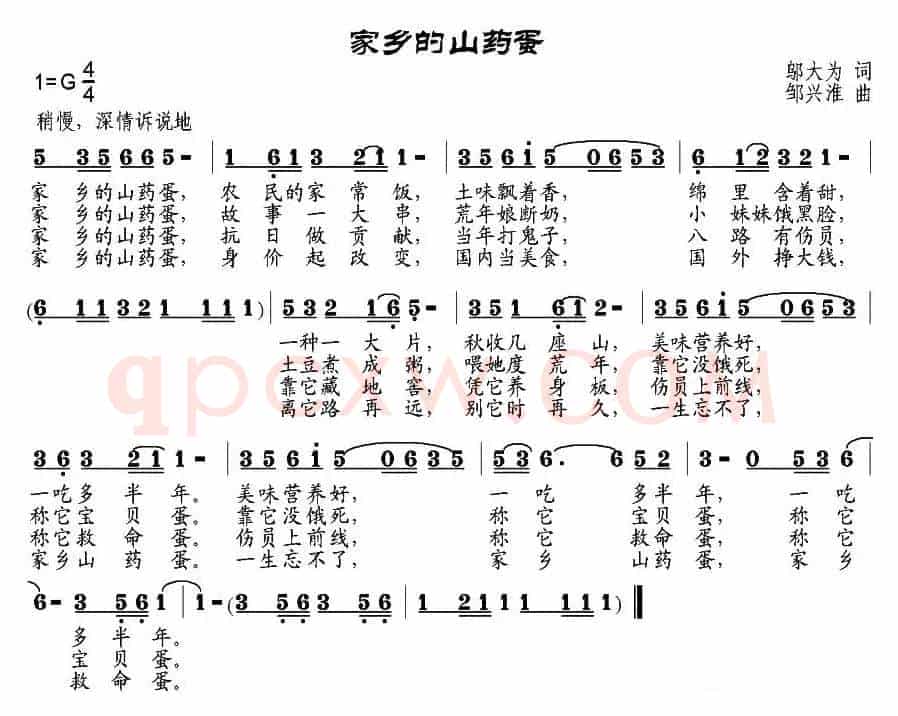 家乡的山药蛋
1=G 4/4
邬大为 词
邹兴淮 曲
稍慢，深情诉说地
5 35 66 5- | 1 61 3 21 1- | 356i 5 0653 | 6 12 321 1- |
家 乡的山药蛋， 农 民的家 常 饭， 土味飘着香， 绵 里 含着甜，
家 乡的山药蛋， 故 事 一 大 串， 荒年娘断奶， 小 妹妹饿黑脸，
家 乡的山药蛋， 抗 日 做 贡 献， 当年打鬼子， 八 路 有伤员，
家 乡的山药蛋， 身 价 起 改 变， 国内当美食， 国 外 挣大钱，
(6 11 321 111) | 532 16 5- | 351 61 2- | 356i 5 0653 |
一种一 大 片， 秋收几 座 山， 美味营养好，
土豆煮 成 粥， 喂她度 荒 年， 靠它没饿死，
靠它藏 地 窖， 凭它养 身 板， 伤员上前线，
离它路 再 远， 别它时 再 久， 一生忘不了，
qpcxw.com
36 3 21 1- | 356i 5 0635 | 53 6. 652 | 3- 0 53 6 |
一吃多 半 年。 美味营养好， 一 吃 多半 年， 一 吃
称它宝 贝 蛋。 靠它没饿死， 称 它 宝贝 蛋， 称 它
称它救 命 蛋。 伤员上前线， 称 它 救命 蛋， 称 它
家乡山 药 蛋。 一生忘不了， 家 乡 山药 蛋，
6- 3 56 1 | 1- (3 56 3 56 | 1 211 1 111) ‖
多 半 年。
宝 贝 蛋。
救 命 蛋。